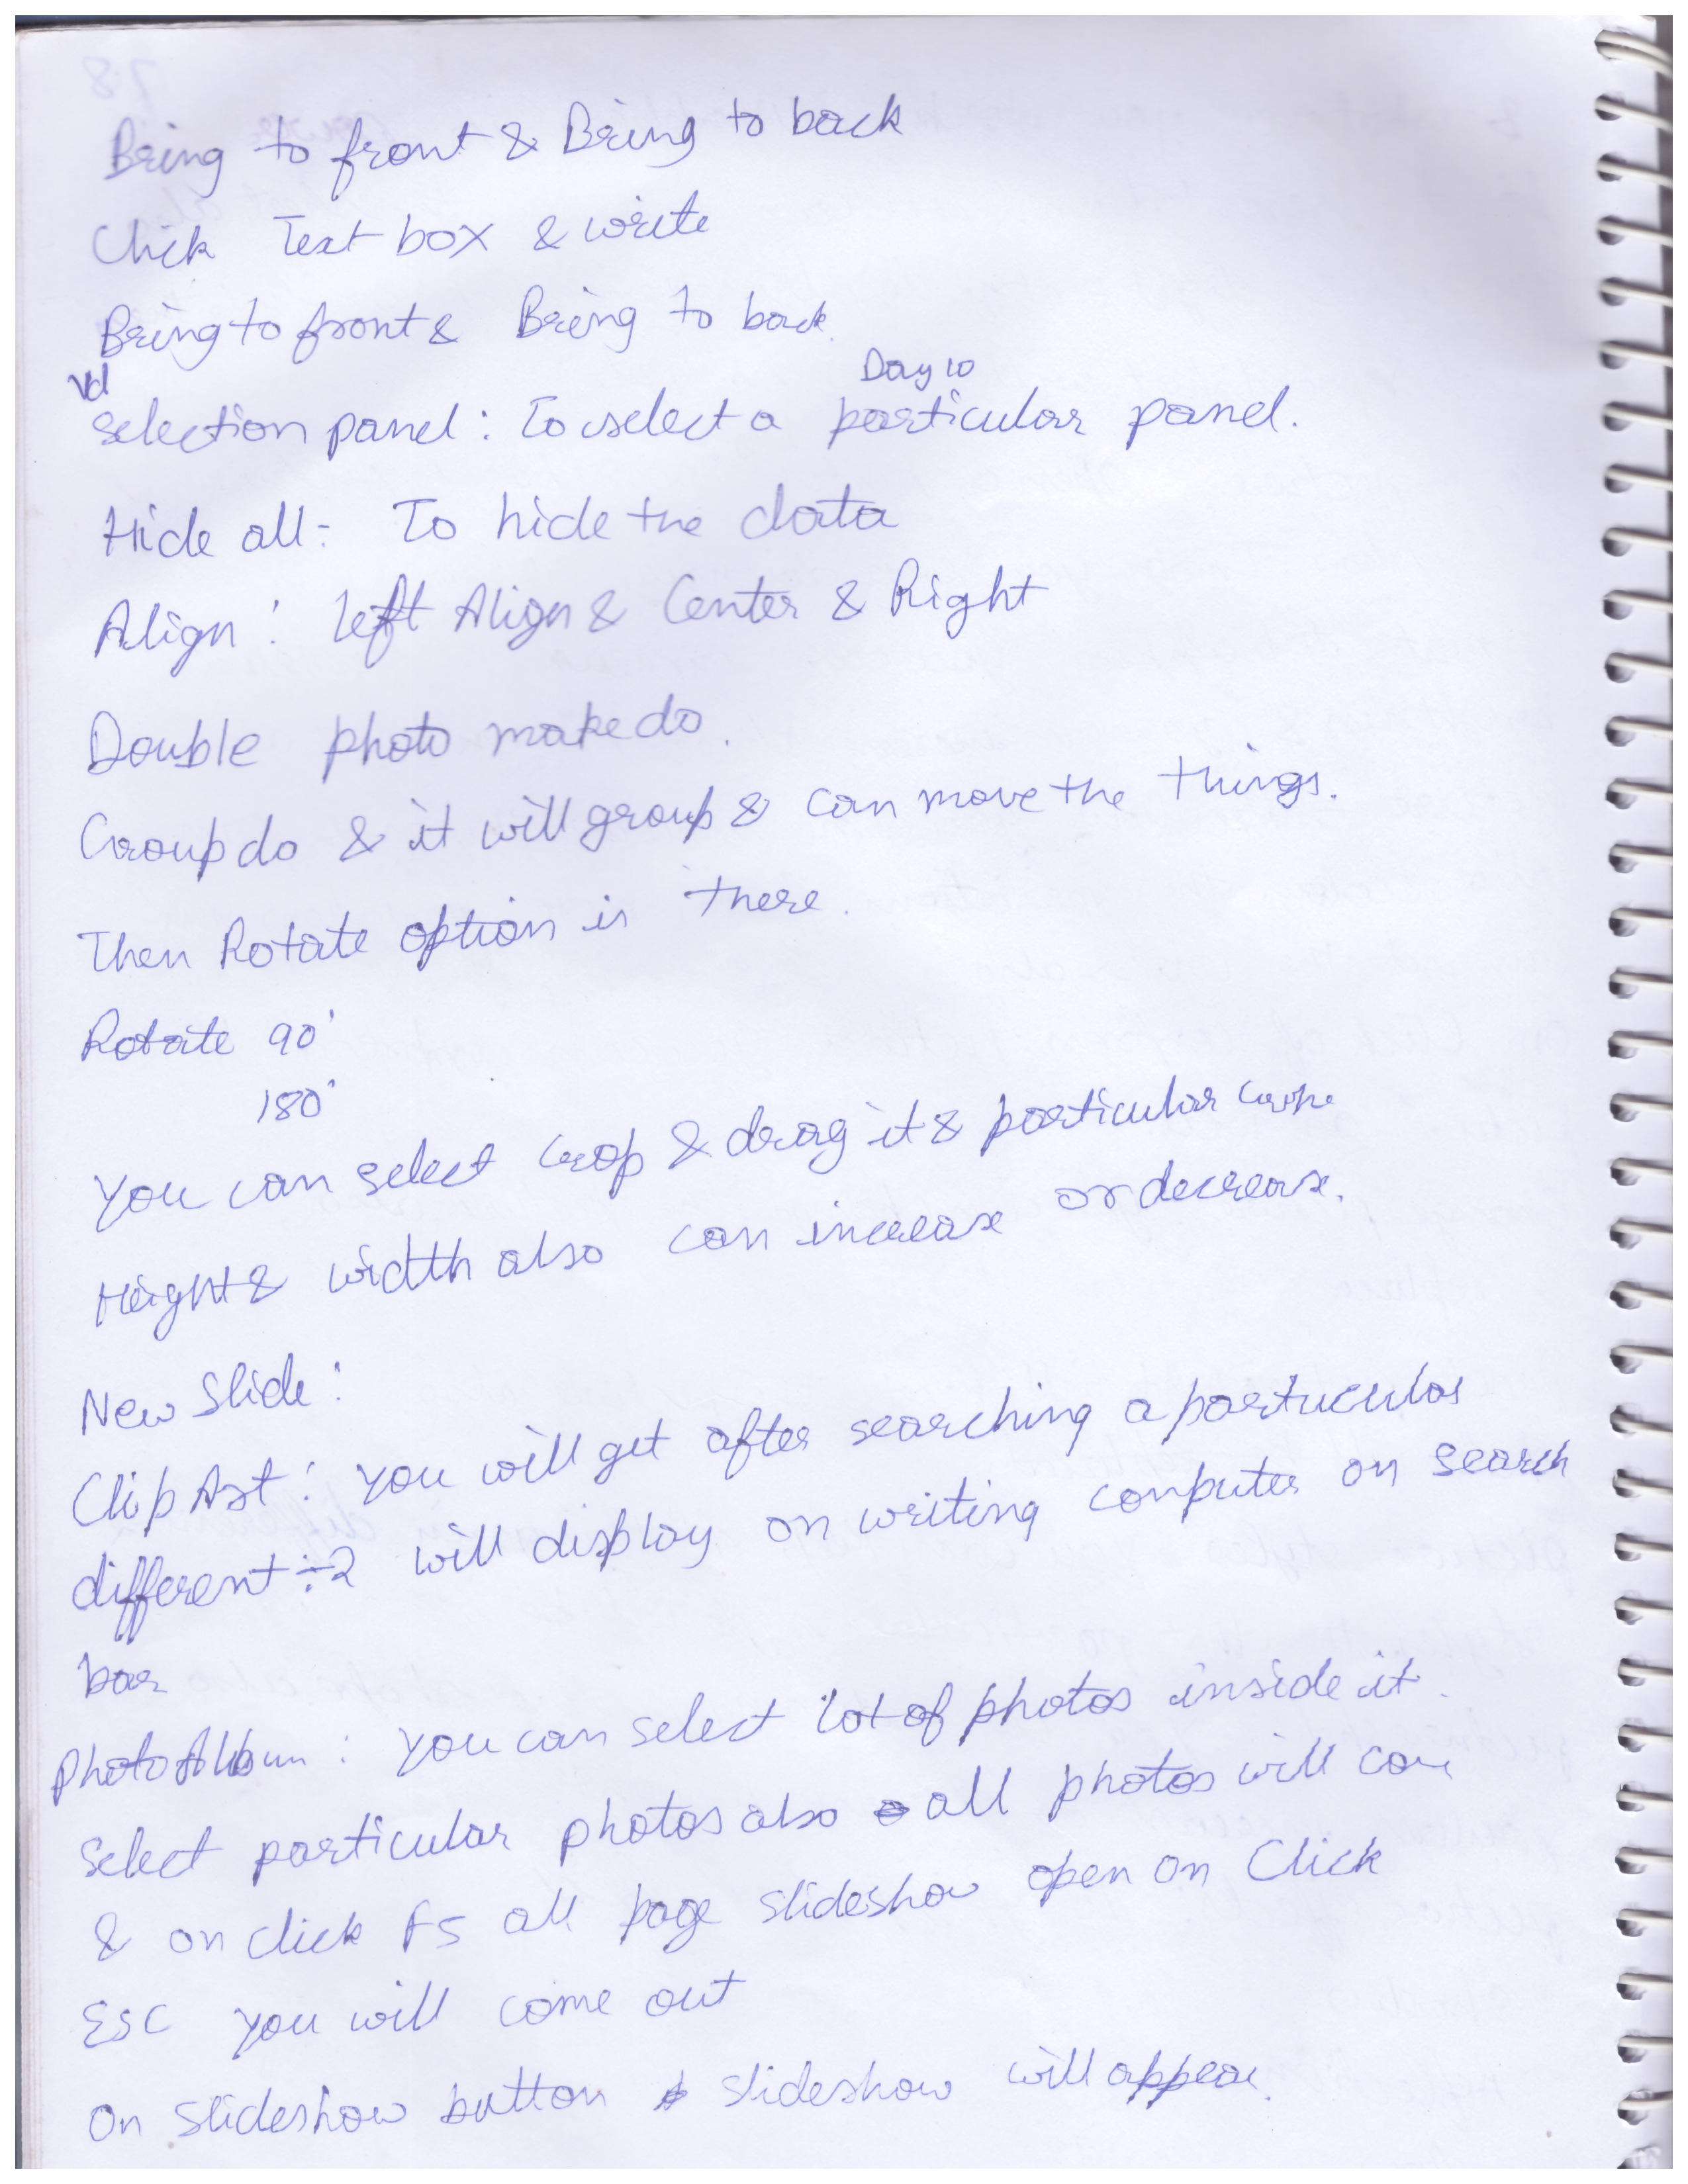 Bring to front & Bring to back
Click Text box & write
Bring to front & Bring to back.
Vd
Day 10
Selection panel: To select a particular panel.
Hide all:- To hide the data
Align: left Align & Center & Right
Double photo make do.
Group do & it will group & can move the things.
Then Rotate option is there.
Rotate 90°
180°
You can select crop & drag it & particular
Height & width also can increase or decrease.
New Slide:
Clip Art: You will get after searching a partuculas
different ÷2 will display on writing computer on search
bar
Photo Album: You can select lot of photos inside it.
Select particular photos also all photos will com
& on click F5 all page slideshow open on Click
ESC you will come out
On slideshow button slideshow will appear.